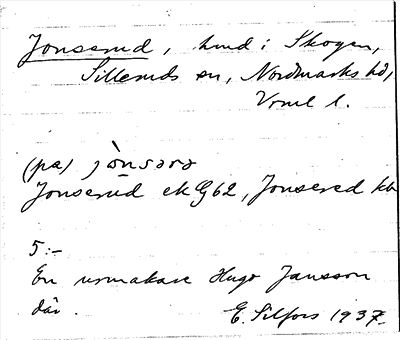 Jonserud, hmd i Skogen,
Silleruds sn, Nordmarks hd,
Vrml l.
(på) jònsərə
Jonserud ek G62, Jonsered kb
5:-
En urmakare Hugo Jansson
där.
E. Silfors 1937.